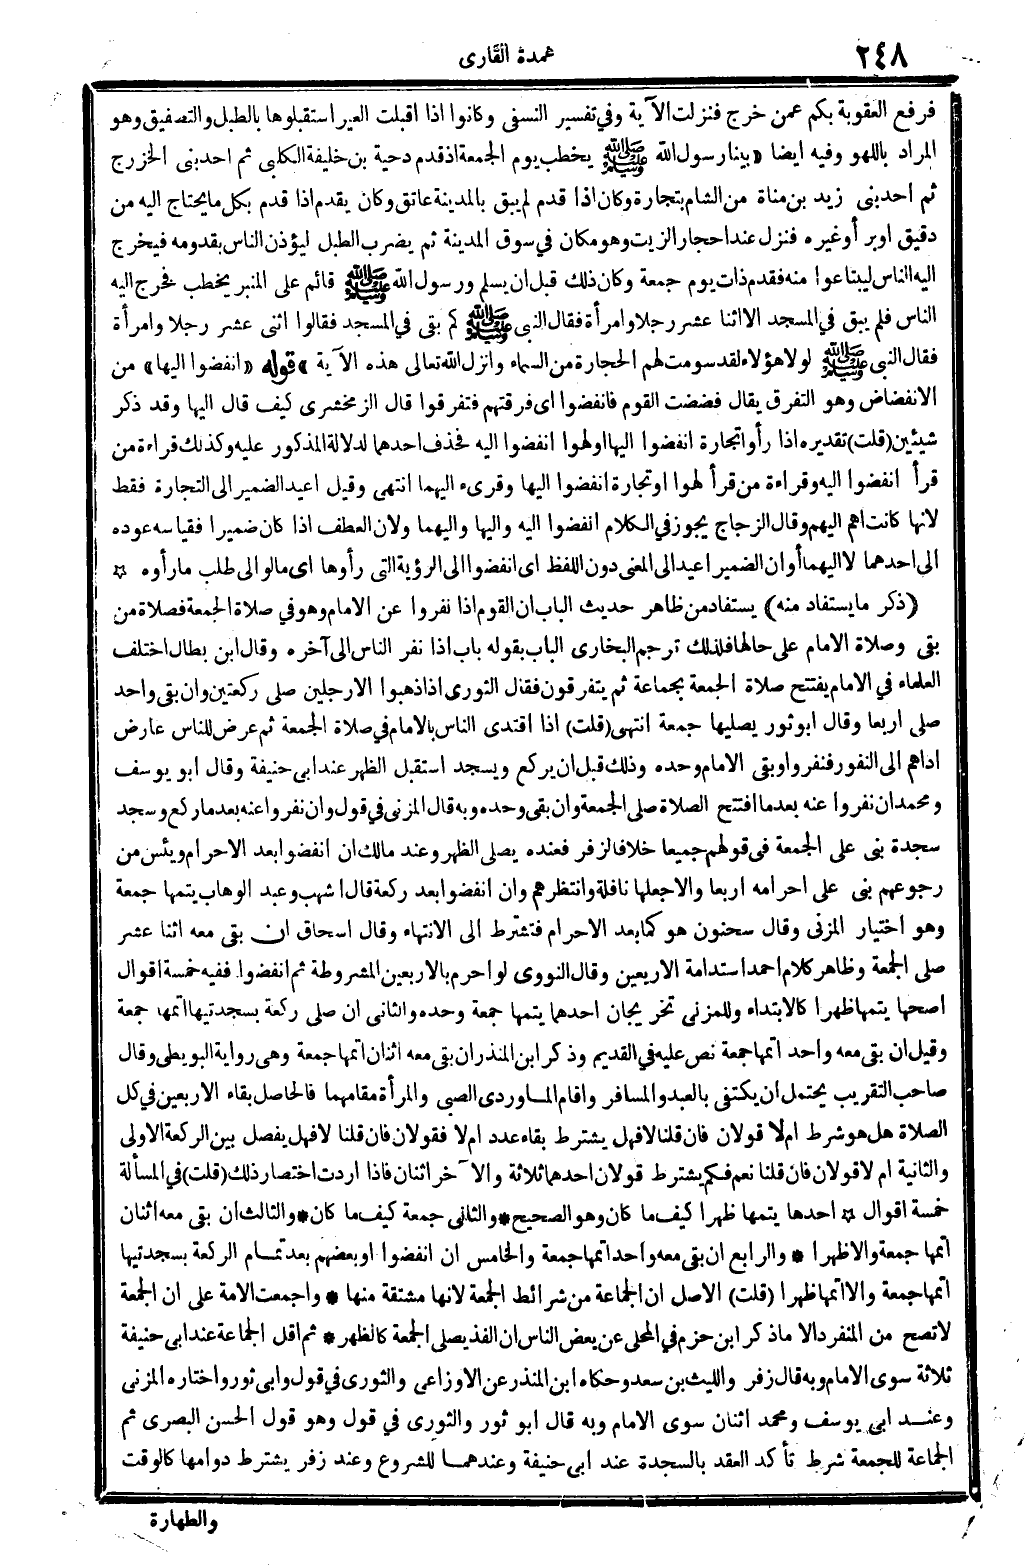 ٢٤٨
عمدة القارى
فرفع العقوبة بكم عمن خرج فنزلت الآية وفي تفسير النسفى وكانوا اذا اقبلت العير استقبلوها بالطبل والتصفيق وهو
المراد باللهو وفيه ايضا «بينا رسول الله ﷺ يخطب يوم الجمعة اذ قدم دحية بن خليفة الكلبى ثم احد بنى الخزرج
ثم احد بنى زيد بن مناة من الشام بتجارة وكان اذا قدم لم يبق بالمدينة عاتق وكان يقدم اذا قدم بكل ما يحتاج اليه من
دقيق او بر أو غيره فنزل عند احجار الزيت وهو مكان في سوق المدينة ثم يضرب الطبل ليؤذن الناس بقدومه فيخرج
اليه الناس ليبتاعوا منه فقدم ذات يوم جمعة وكان ذلك قبل ان يسلم ورسول الله ﷺ قائم على المنبر يخطب فخرج اليه
الناس فلم يبق في المسجد الا اثنا عشر رجلا وامرأة فقال النبى ﷺ كم بقى في المسجد فقالوا اثنى عشر رجلا وامرأة
فقال النبى ﷺ لولا هؤلاء لقد سومت لهم الحجارة من السماء وانزل الله تعالى هذه الآية» قوله «انفضوا اليها» من
الانفضاض وهو التفرق يقال فضضت القوم فانفضوا اى فرقتهم فتفرقوا قال الزمخشرى كيف قال اليها وقد ذكر
شيئين (قلت) تقديره اذا رأوا تجارة انفضوا اليها او لهوا انفضوا اليه فحذف احدهما لدلالة المذكور عليه وكذلك قراءة من
قرأ انفضوا اليه وقراءة من قرأ لهوا او تجارة انفضوا اليها وقرىء اليهما انتهى وقيل اعيد الضمير الى التجارة فقط
لانها كانت اهم اليهم وقال الزجاج يجوز في الكلام انفضوا اليه واليها واليهما ولان العطف اذا كان ضميرا فقياسه عوده
الى احدهما لا اليهما أو ان الضمير اعيد الى المعنى دون اللفظ اى انفضوا الى الرؤية التى رأوها اى مالوا الى طلب ما رأوه ☆
(ذكر ما يستفاد منه) يستفاد من ظاهر حديث الباب ان القوم اذا نفروا عن الامام وهو في صلاة الجمعة فصلاة من
بقى وصلاة الامام على حالها فلذلك ترجم البخارى الباب بقوله باب اذا نفر الناس الى آخره وقال ابن بطال اختلف
العلماء في الامام يفتتح صلاة الجمعة بجماعة ثم يتفرقون فقال الثورى اذا ذهبوا الا رجلين صلى ركعتين وان بقى واحد
صلى اربعا وقال ابو ثور يصليها جمعة انتهى (قلت) اذا اقتدى الناس بالامام في صلاة الجمعة ثم عرض للناس عارض
اداهم الى النفور فنفروا وبقى الامام وحده وذلك قبل ان يركع ويسجد استقبل الظهر عند ابى حنيفة وقال ابو يوسف
ومحمد ان نفروا عنه بعدما افتتح الصلاة صلى الجمعة وان بقى وحده وبه قال المزنى في قول وان نفروا عنه بعد ما ركع وسجد
سجدة بنى على الجمعة فى قولهم جميعا خلافا لزفر فعنده يصلى الظهر وعند مالك ان انفضوا بعد الاحرام ويئس من
رجوعهم بنى على احرامه اربعا والا جعلها نافلة وانتظرهم وان انفضوا بعد ركعة قال اشهب وعبد الوهاب يتمها جمعة
وهو اختيار المزنى وقال سحنون هو كما بعد الاحرام فتشترط الى الانتهاء وقال اسحاق ان بقى معه اثنا عشر
صلى الجمعة وظاهر كلام احمد استدامة الاربعين وقال النووى لو احرم بالاربعين المشروطة ثم انفضوا ففيه خمسة اقوال
اصحها يتمها ظهرا كالابتداء وللمزنى تخريجان احدهما يتمها جمعة وحده والثانى ان صلى ركعة بسجدتيها اتمها جمعة
وقيل ان بقى معه واحد اتمها جمعة نص عليه في القديم وذكر ابن المنذر ان بقى معه اثنان اتمها جمعة وهى رواية البويطى وقال
صاحب التقريب يحتمل ان يكتفى بالعبد والمسافر واقام الماوردى الصبى والمرأة مقامهما فالحاصل بقاء الاربعين في كل
الصلاة هل هو شرط ام لا قولان فان قلنا لا فهل يشترط بقاء عدد ام لا فقولان فان قلنا لا فهل يفصل بين الركعة الاولى
والثانية ام لا قولان فان قلنا نعم فكم يشترط قولان احدهما ثلاثة والآخر اثنان فاذا اردت اختصار ذلك (قلت) في المسألة
خمسة اقوال ☆ احدها يتمها ظهرا كيف ما كان وهو الصحيح * والثانى جمعة كيف ما كان * والثالث ان بقى معه اثنان
اتمها جمعة والا ظهرا * والرابع ان بقى معه واحد اتمها جمعة والخامس ان انفضوا او بعضهم بعد تمام الركعة بسجدتيها
اتمها جمعة والا اتمها ظهرا (قلت) الاصل ان الجماعة من شرائط الجمعة لانها مشتقة منها * واجمعت الامة على ان الجمعة
لا تصح من المنفرد الا ما ذكر ابن حزم في المحلى عن بعض الناس ان الفذ يصلى الجمعة كالظهر * ثم اقل الجماعة عند ابى حنيفة
ثلاثة سوى الامام وبه قال زفر والليث بن سعد وحكاه ابن المنذر عن الاوزاعى والثورى في قول وابى ثور واختاره المزنى
وعند ابى يوسف ومحمد اثنان سوى الامام وبه قال ابو ثور والثورى في قول وهو قول الحسن البصرى ثم
الجماعة للجمعة شرط تأكد العقد بالسجدة عند ابى حنيفة وعندهما للشروع وعند زفر يشترط دوامها كالوقت
والطهارة